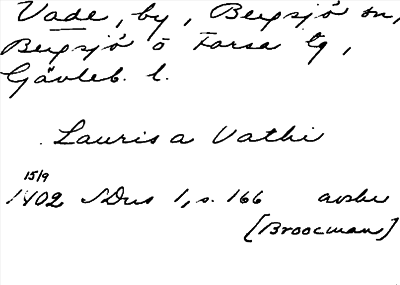 Vade, by, Bergsjö sn,
Bergsjö o Forsa tg,
Gävleb. l.
Lauris a Vathi
15/9
1402 SDns 1, s. 166 avskr
[Broocman]